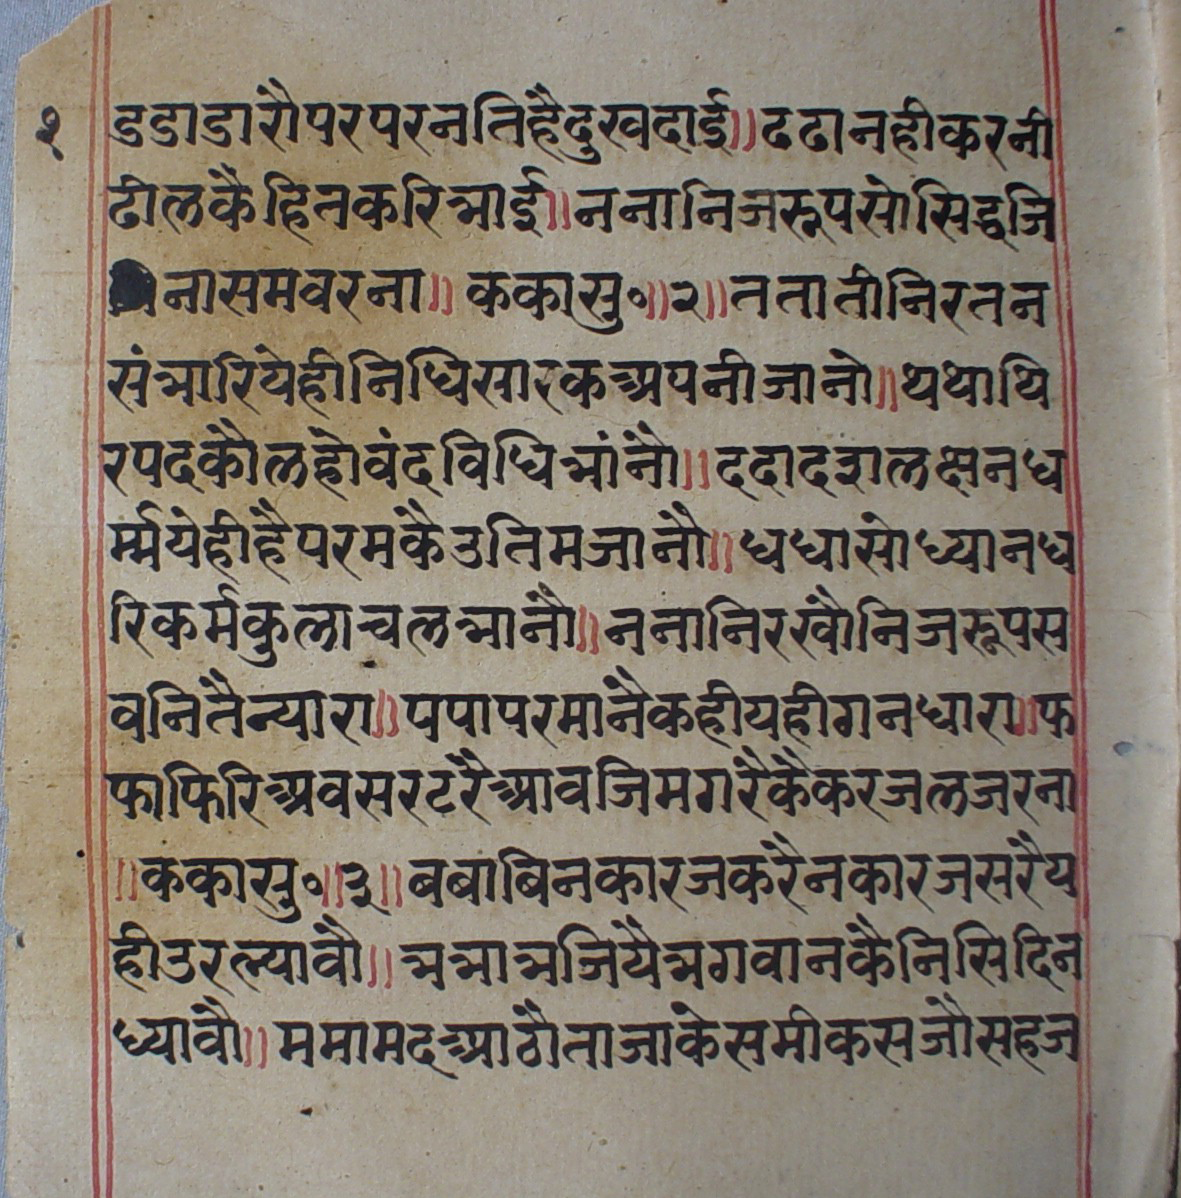 १ डडाडारौपरपरनतिहैदुखदाई॥ढढानहीकरनी
ढीलकैहितकरिभाई॥ननानिजरूपसोसिद्धजि
नासमवरना॥ककासु॰॥२॥ततातीनिरतन
संभारियेहीनिधिसारकअपनीजानो॥थथाथि
रपदकौलहोवंदविधिभांनौ॥ददादशलक्षनध
र्म्मयेहीहैपरमकैउतिमजानौ॥धधासोध्यानध
रिकर्मकुलाचलभानौ॥ननानिरखौनिजरूपस
वनितैन्यारा॥पपापरमानैकहीयहीगनधारा॥फ
फाफिरिअवसरटरैआवजिमगरैकैकरजलजरना
॥ककासु॰॥३॥बबाबिनकारजकरैनकारजसरैय
हीउरल्यावौ॥भभाभजियैभगवानकैनिसिदिन
ध्यावौ॥ममामदआठौताजाकेसमीकसजौसहज